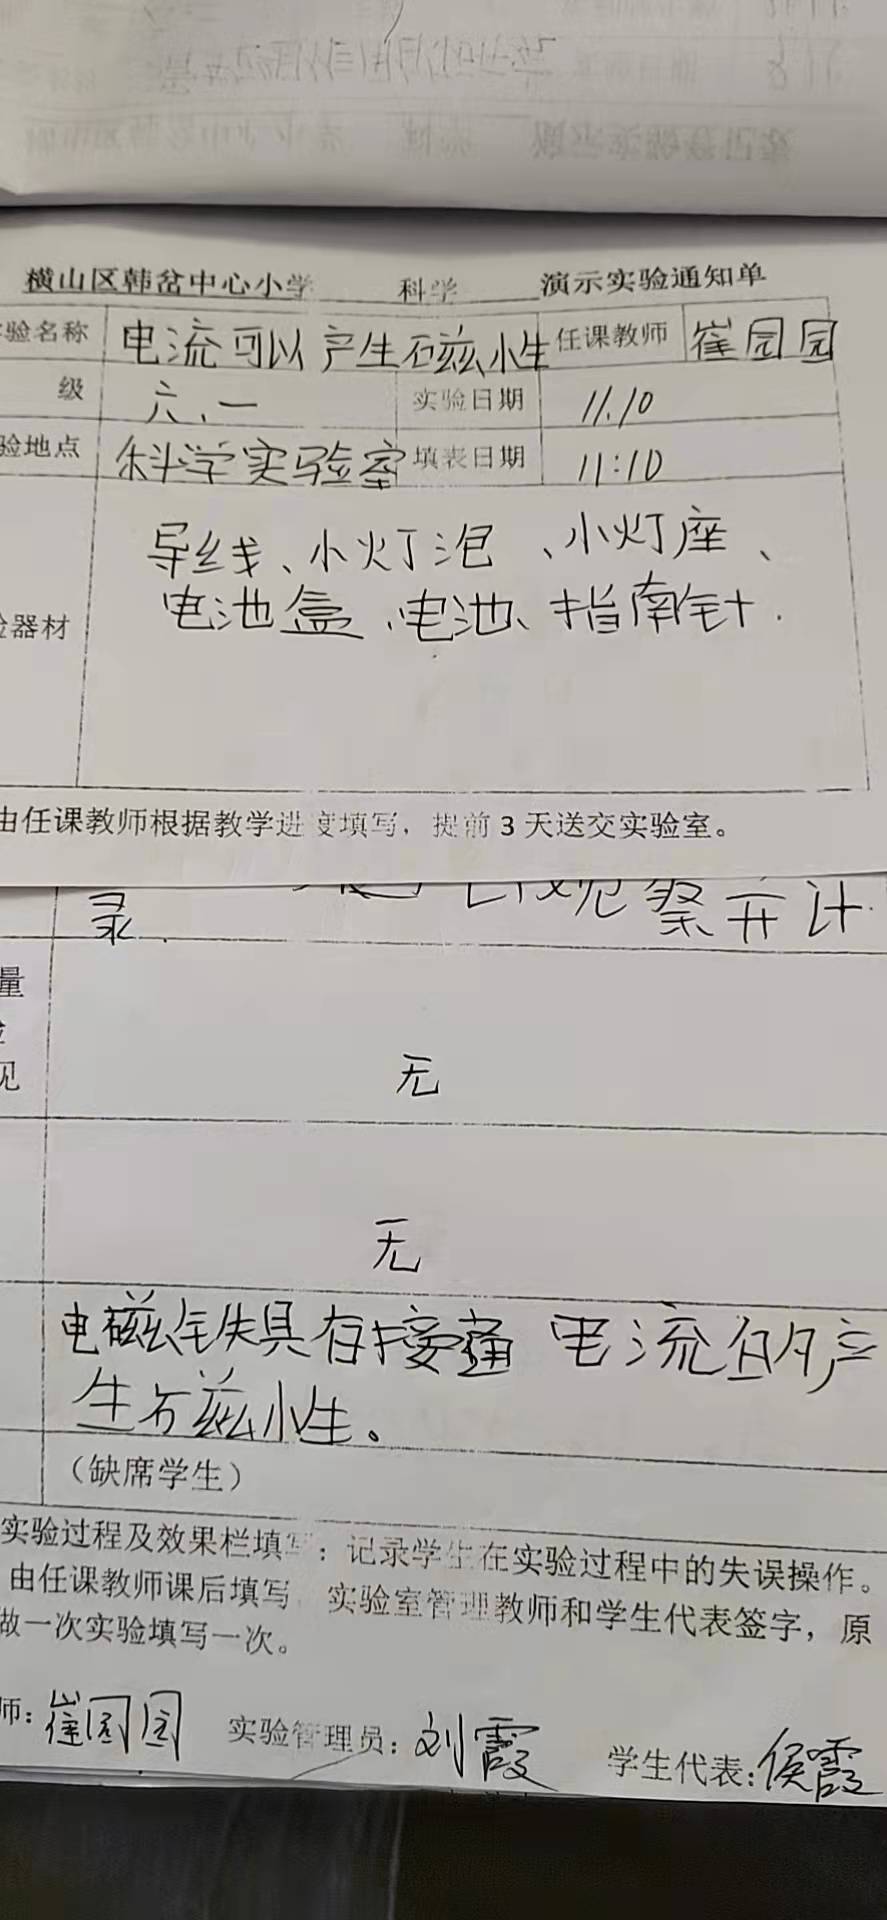 横山区韩岔中心小学 科学 演示实验通知单
验名称 电流可以产生磁性 任课教师 崔园园
级 六.一 实验日期 11.10
验地点 科学实验室 填表日期 11:10
导线、小灯泡、小灯座、
电池盒、电池、指南针.
验器材
由任课教师根据教学进度填写，提前3天送交实验室。
观察并计
录.
量
见
无
无
电磁铁具有接通电流的产
生磁性。
（缺席学生）
实验过程及效果栏填写：记录学生在实验过程中的失误操作。
由任课教师课后填写 实验室管理教师和学生代表签字，原
做一次实验填写一次。
师：崔园园 实验管理员：刘霞 学生代表：侯霞